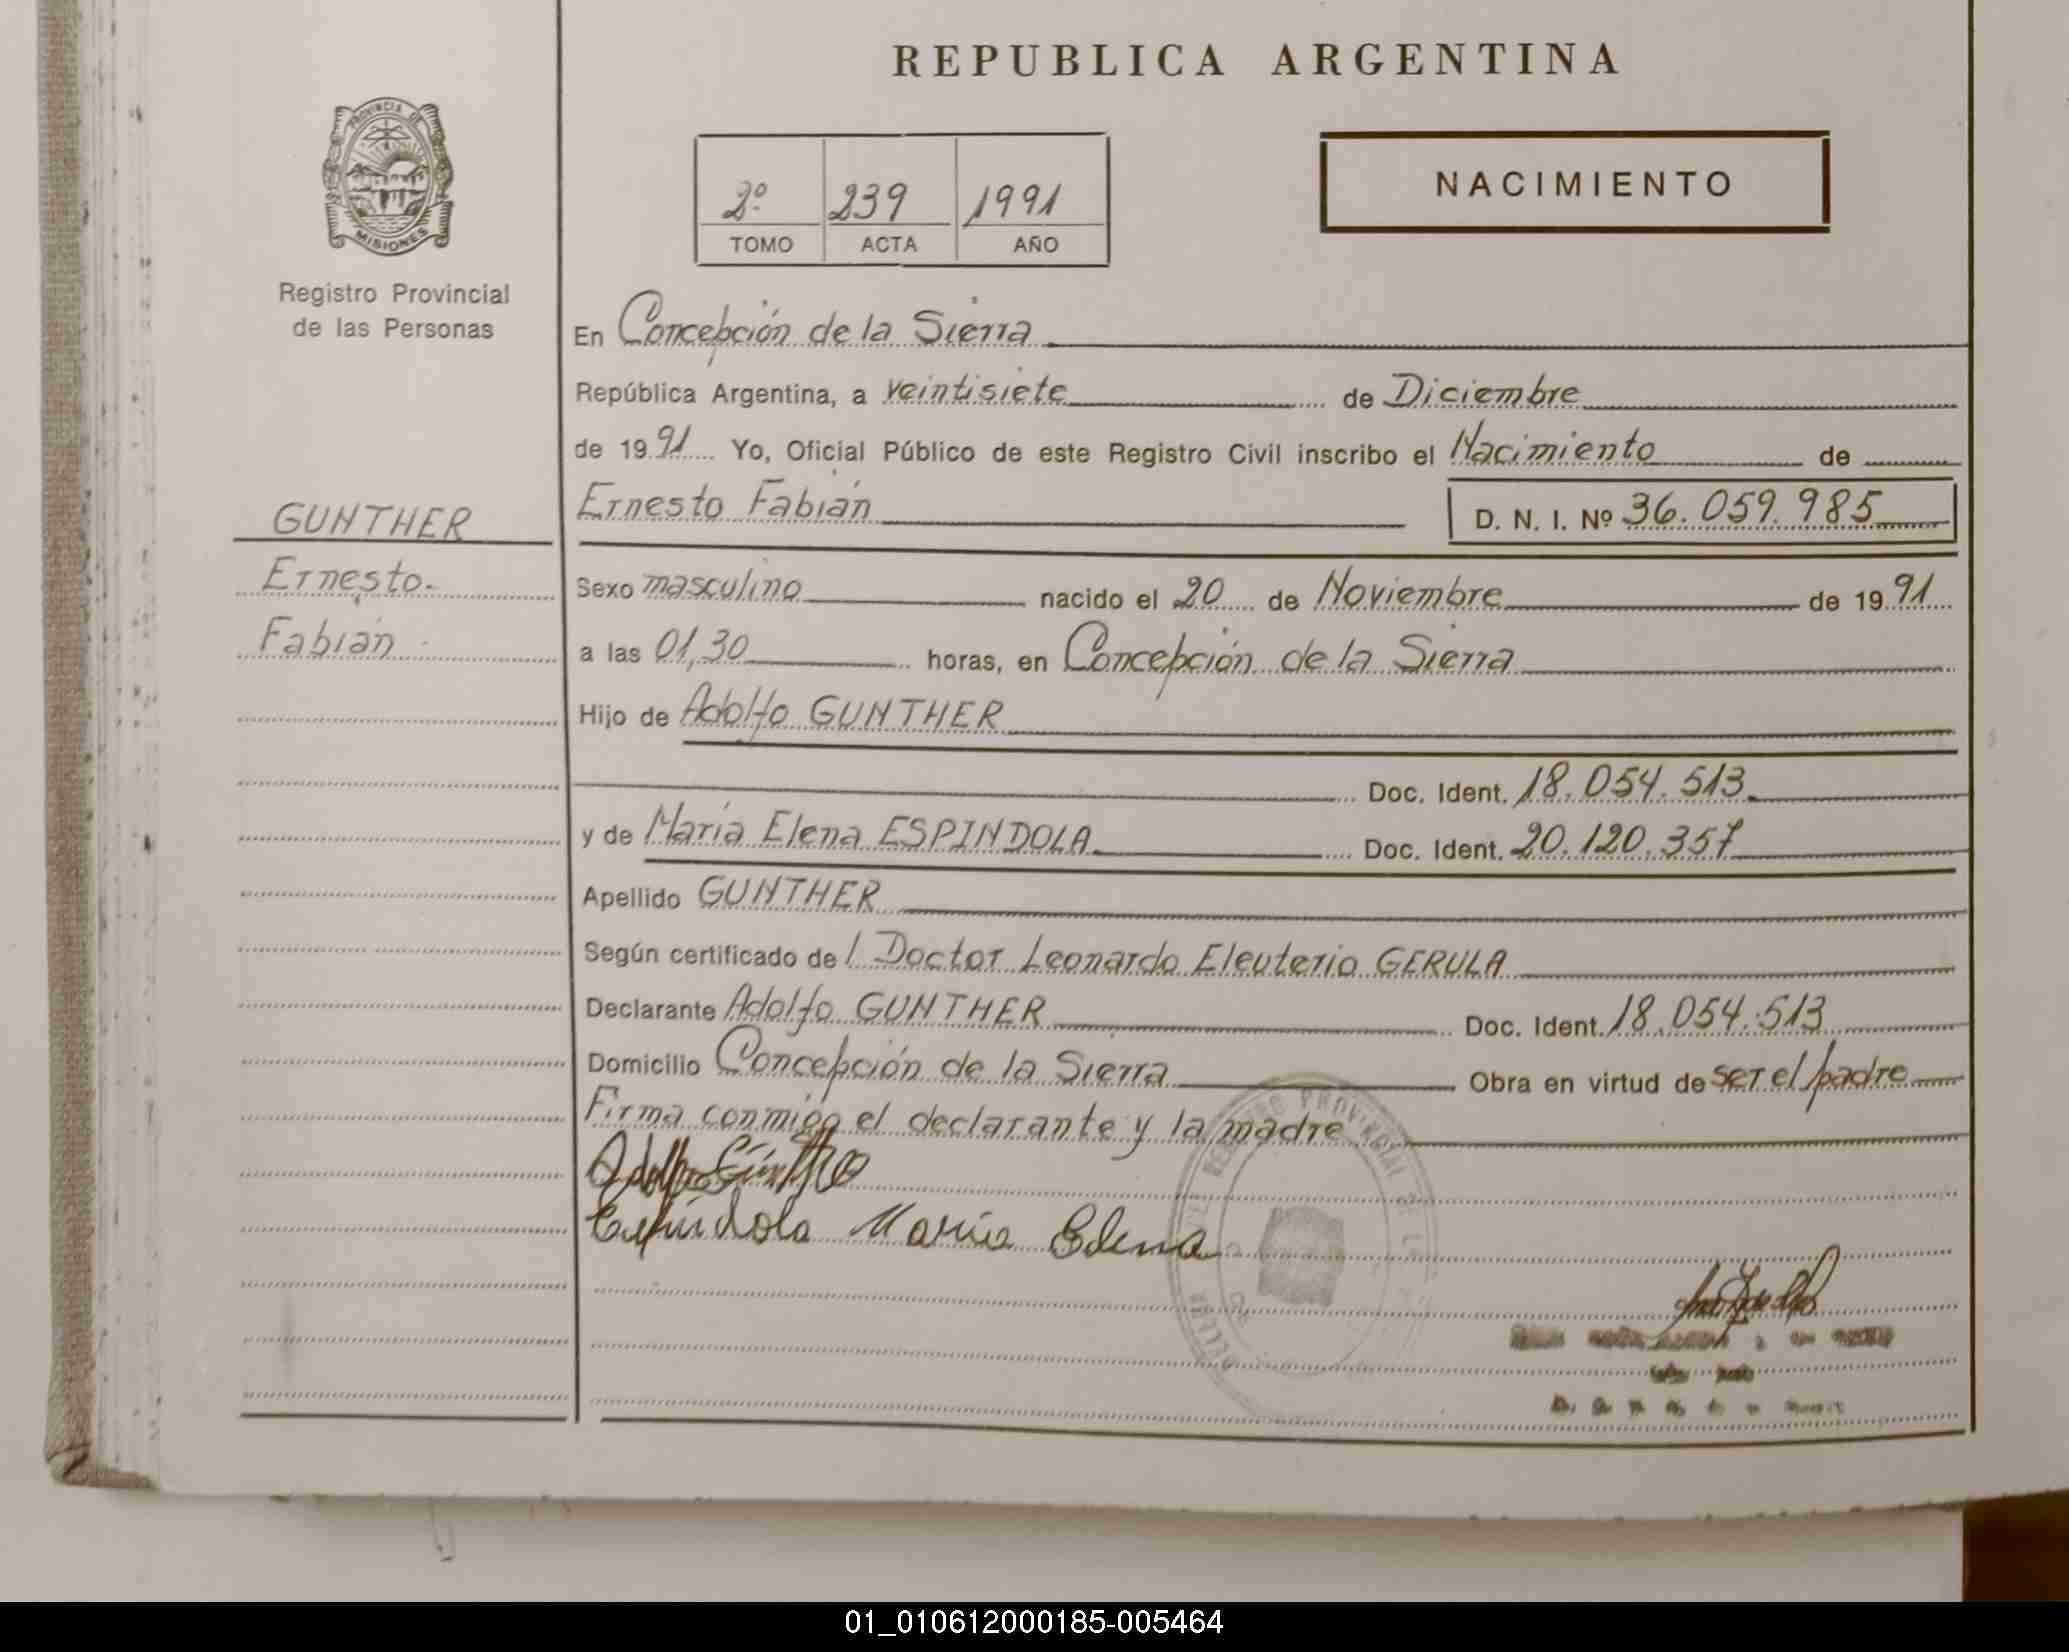 REPUBLICA ARGENTINA
PROVINCIA DE
MISIONES
Registro Provincial
de las Personas
2º 239 1991
TOMO ACTA AÑO
NACIMIENTO
En Concepción de la Sierra
República Argentina, a veintisiete de Diciembre
de 1991 Yo, Oficial Público de este Registro Civil inscribo el Nacimiento de
GUNTHER
Ernesto
Fabián
Ernesto Fabián D. N. I. Nº 36.059.985
Sexo masculino nacido el 20 de Noviembre de 1991
a las 01,30 horas, en Concepción de la Sierra
Hijo de Adolfo GUNTHER
Doc. Ident. 18.054.513
y de María Elena ESPINDOLA Doc. Ident. 20.120.357
Apellido GUNTHER
Según certificado de l Doctor Leonardo Eleuterio GERULA
Declarante Adolfo GUNTHER Doc. Ident. 18.054.513
Domicilio Concepción de la Sierra Obra en virtud de ser el padre
Firma conmigo el declarante y la madre
Adolfo
Espíndola María Elena
REGISTRO PROVINCIAL DE LA
01_010612000185-005464